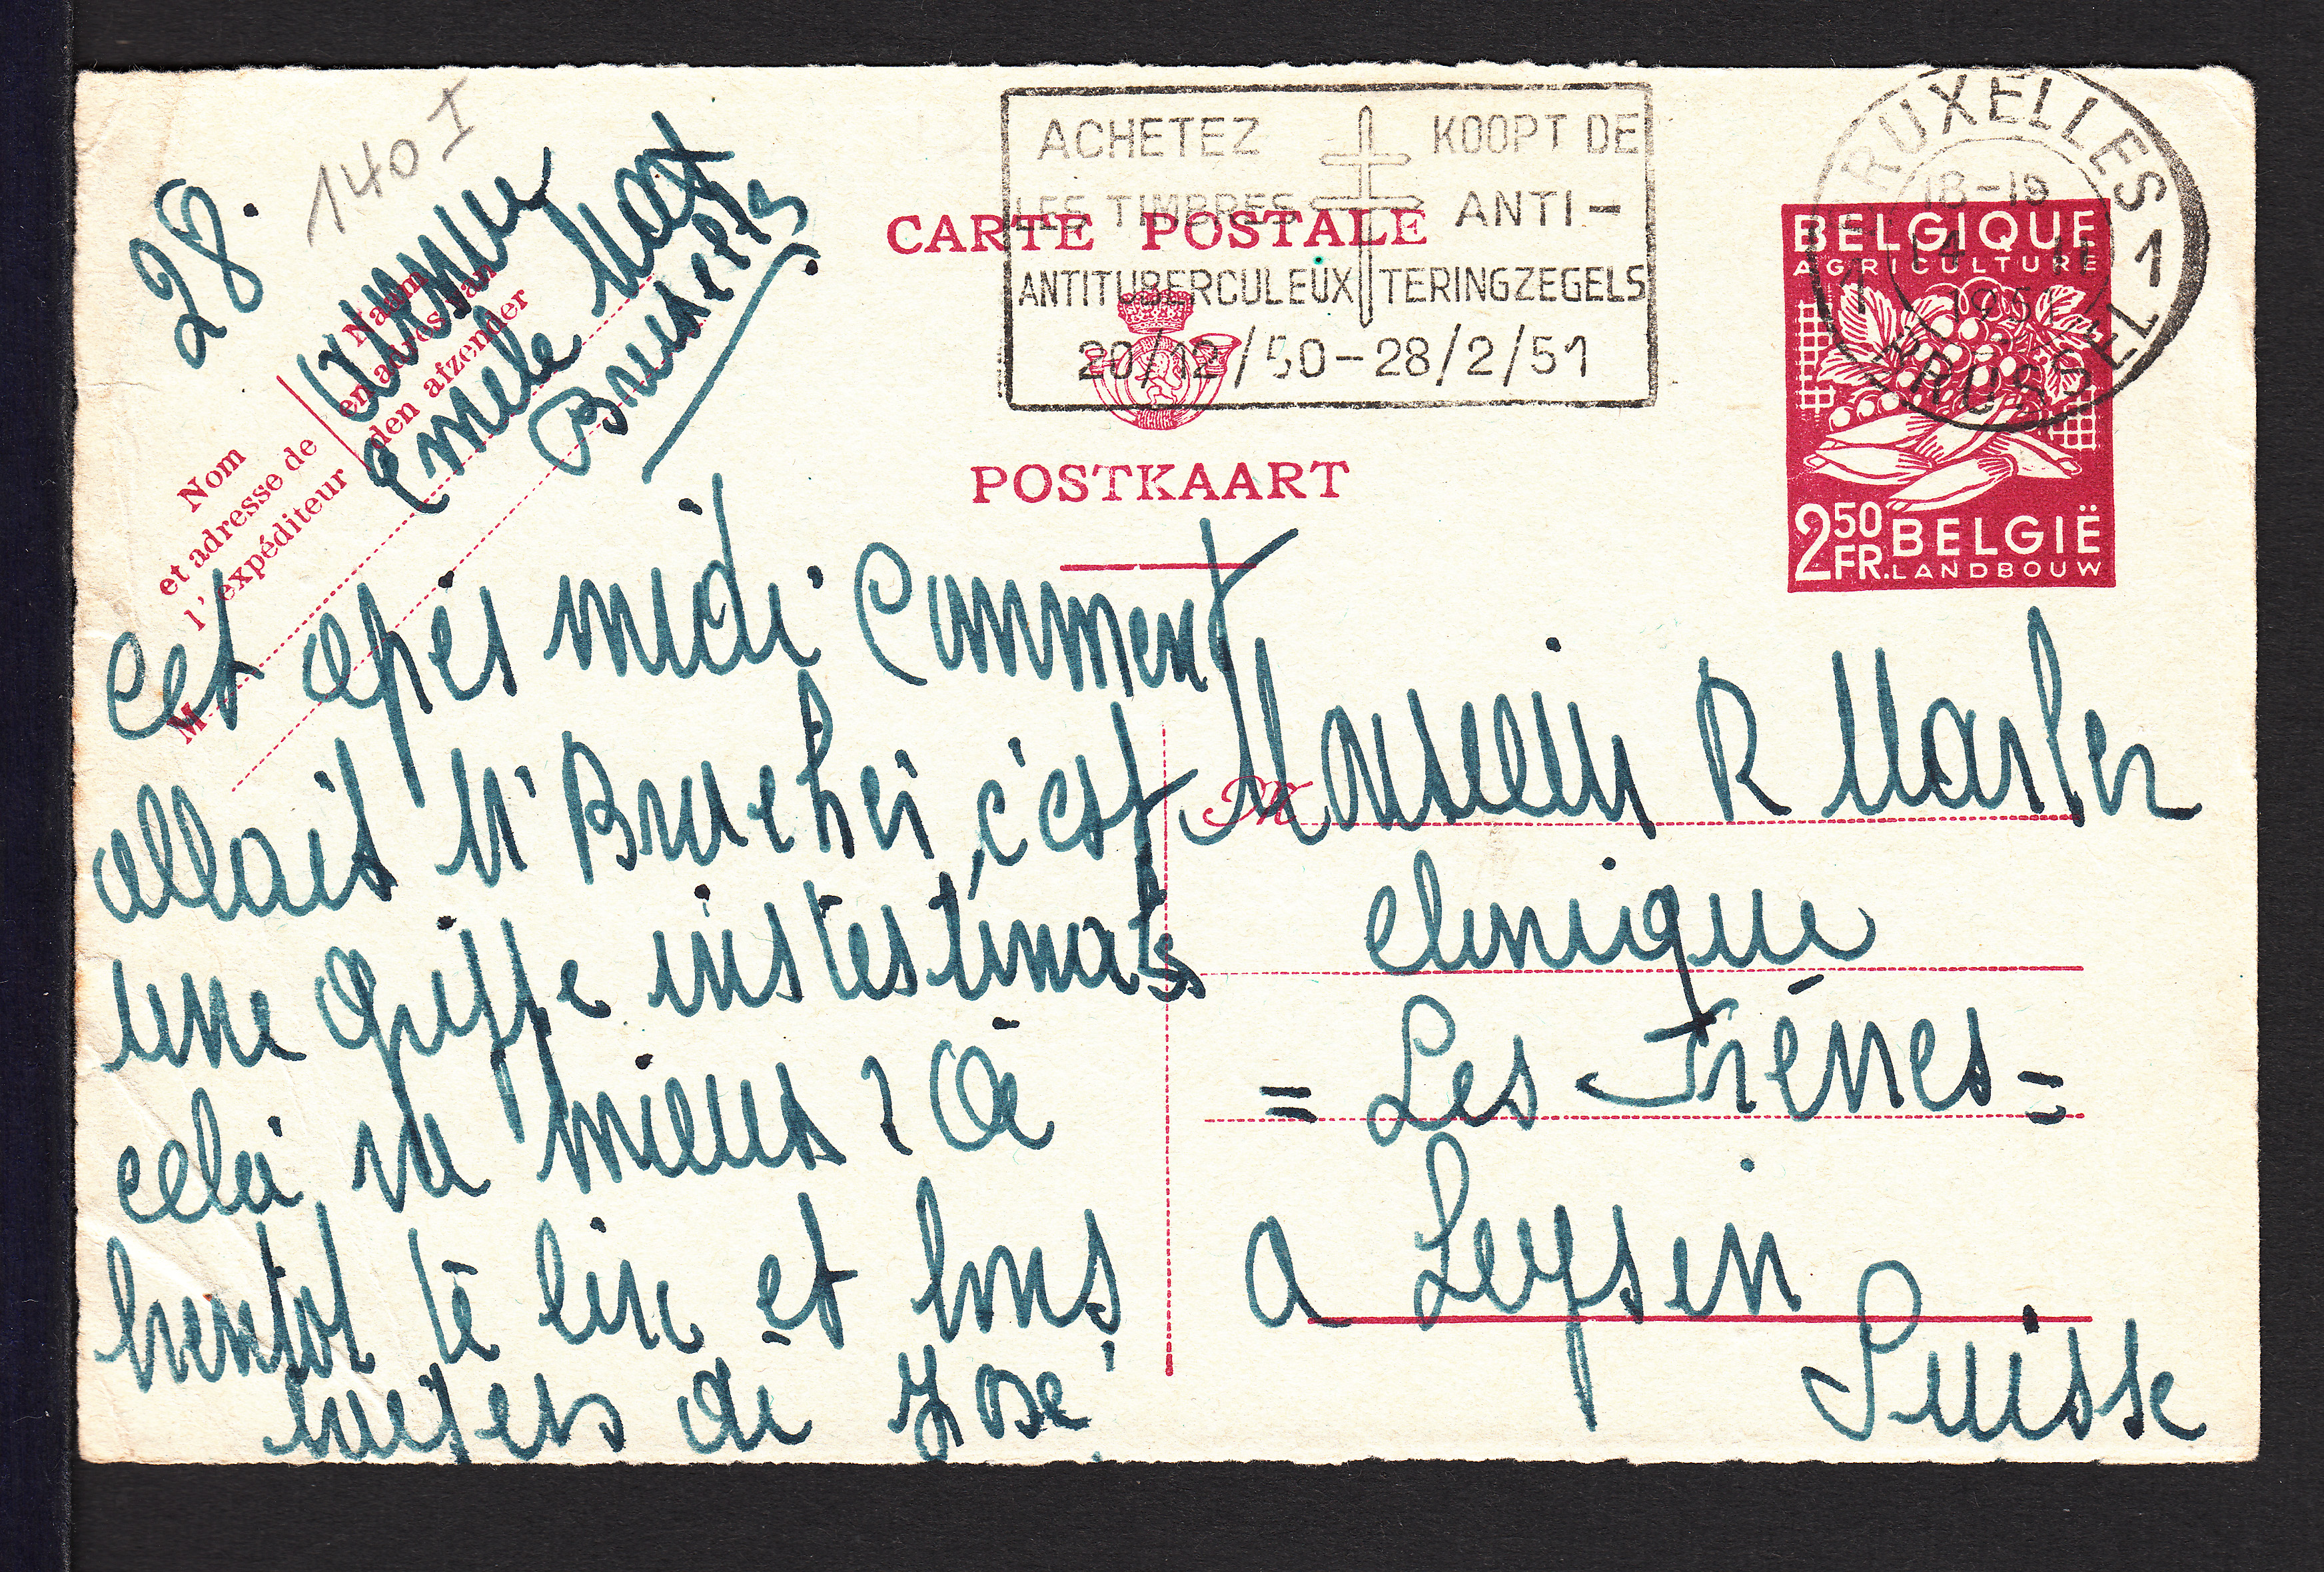 140 I
28.
Avenue
Emile Max
Bruxelles
Naam
en adres van
den afzender
Nom
et adresse de
l'expéditeur
M
ACHETEZ
LES TIMBRES
ANTITUBERCULEUX
KOOPT DE
ANTI-
TERINGZEGELS
20/12/50-28/2/51
CARTE POSTALE
POSTKAART
BRUXELLES
18-19
14 II
1951
BRUSSEL
1 1
BELGIQUE
AGRICULTURE
2 50 FR. BELGIË
LANDBOUW
Cet après midi Comment
allait Mr c'est
une Grippe instestinale
cela va mieux ? A
bientot te lire et bons
de José
M
Monsieur R
clinique
= Les Frênes =
a Leysin
Suisse